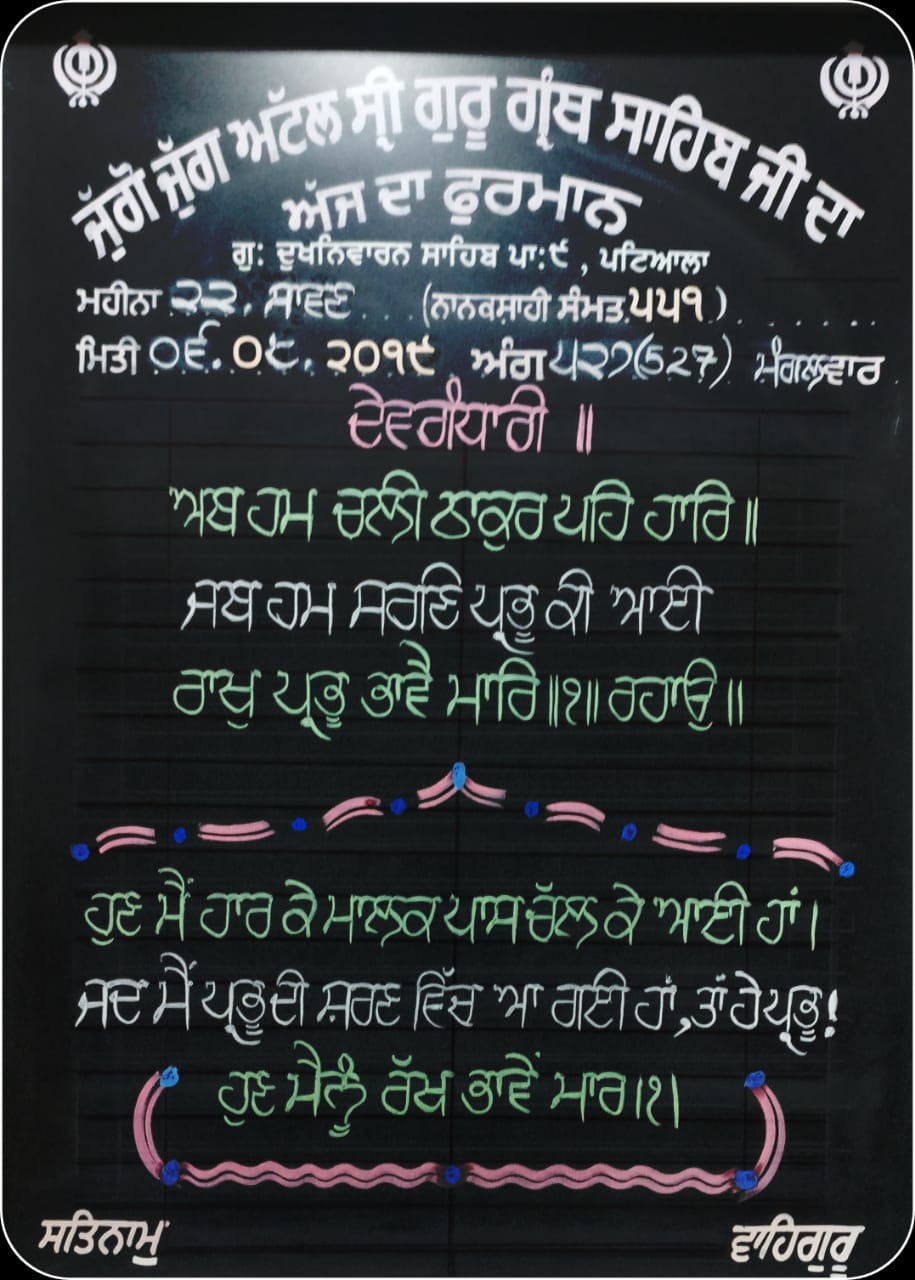 ਜੁੱਗੋ ਜੁੱਗ ਅਟੱਲ ਸ੍ਰੀ ਗੁਰੂ ਗ੍ਰੰਥ ਸਾਹਿਬ ਜੀ ਦਾ
ਅੱਜ ਦਾ ਫੁਰਮਾਨ
ਗੁ: ਦੁਖਨਿਵਾਰਨ ਸਾਹਿਬ ਪਾ:੯ , ਪਟਿਆਲਾ
ਮਹੀਨਾ ੨੨. ਸਾਵਣ (ਨਾਨਕਸ਼ਾਹੀ ਸੰਮਤ ੫੫੧)
ਮਿਤੀ ੦੬.੦੮.੨੦੧੯ ਅੰਗ ੫੨੭(527) ਮੰਗਲਵਾਰ
ਦੇਵਗੰਧਾਰੀ ॥
ਅਬ ਹਮ ਚਲੀ ਠਾਕੁਰ ਪਹਿ ਹਾਰਿ ॥
ਜਬ ਹਮ ਸਰਣਿ ਪ੍ਰਭੂ ਕੀ ਆਈ
ਰਾਖੁ ਪ੍ਰਭੂ ਭਾਵੈ ਮਾਰਿ ॥੧॥ ਰਹਾਉ ॥
ਹੁਣ ਮੈਂ ਹਾਰ ਕੇ ਮਾਲਕ ਪਾਸ ਚੱਲ ਕੇ ਆਈ ਹਾਂ।
ਜਦ ਮੈਂ ਪ੍ਰਭੂ ਦੀ ਸ਼ਰਣ ਵਿੱਚ ਆ ਗਈ ਹਾਂ, ਤਾਂ ਹੇ ਪ੍ਰਭੂ!
ਹੁਣ ਮੈਨੂੰ ਰੱਖ ਭਾਵੇਂ ਮਾਰ।੧।
ਸਤਿਨਾਮੁ ਵਾਹਿਗੁਰੂ